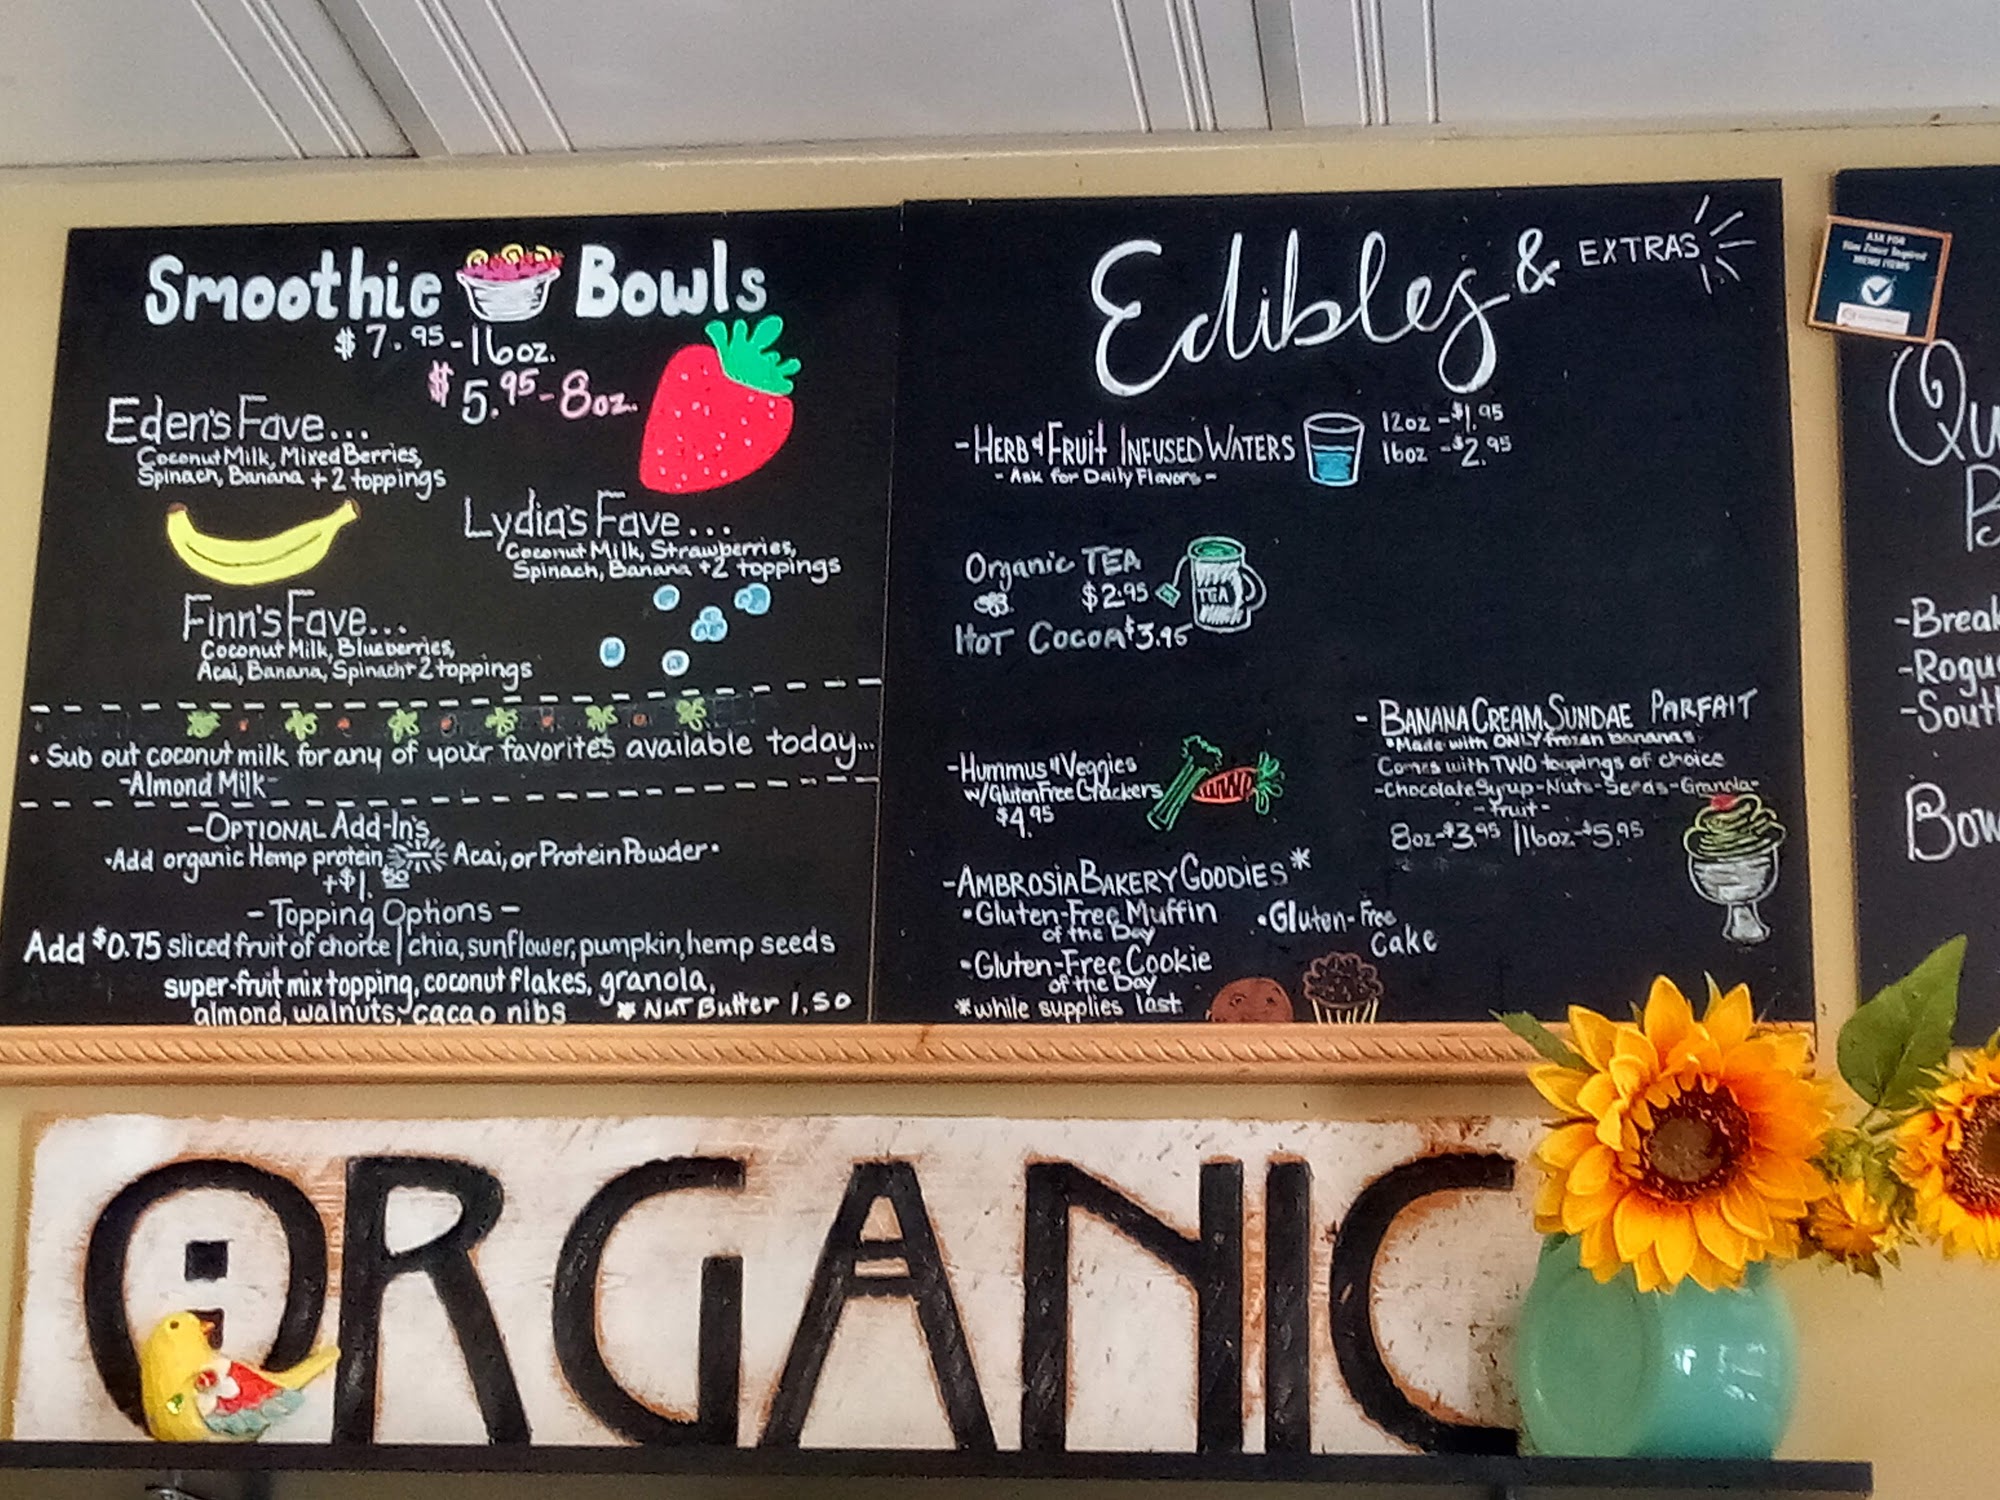 Smoothie Bowls
$7.95-16oz.
$5.95-8oz.
Eden's Fave...
Coconut Milk, Mixed Berries,
Spinach, Banana + 2 toppings
Lydia's Fave...
Coconut Milk, Strawberries,
Spinach, Banana +2 toppings
Finn's Fave...
Coconut Milk, Blueberries,
Acai, Banana, Spinach+2 toppings
• Sub out coconut milk for any of your favorites available today...
-Almond Milk-
-OPTIONAL Add-In's
•Add organic Hemp protein Acai, or Protein Powder•
+$1.50
-Topping Options-
Add $0.75 sliced fruit of choice | chia, sunflower, pumpkin, hemp seeds
super-fruit mix topping, coconut flakes, granola,
almond, walnuts, cacao nibs * NUT BuTTER 1.50
Edibles & EXTRAS
-HERB & FRUIT INFUSED WATERS
- Ask for Daily Flavors -
12oz -$1.95
16oz -$2.95
Organic TEA
$2.95
TEA
HOT COCOA $3.95
-Hummus & Veggies
w/Gluten Free Crackers
$4.95
- BANANA CREAM SUNDAE PARFAIT
*Made with ONLY frozen bananas
Comes with TWO toppings of choice
-Chocolate Syrup-Nuts-Seeds-Granola-
-fruit-
8oz-$3.95 | 16oz-$5.95
-AMBROSIA BAKERY GOODIES*
•Gluten-Free Muffin
of the Day
•Gluten-Free
Cake
•Gluten-Free Cookie
of the Day
*while supplies last
ASK FOR
Blue Zones Inspired
MENU ITEMS
Qu
B
-Break
-Rogu
-Sout
Bow
ORGANIC